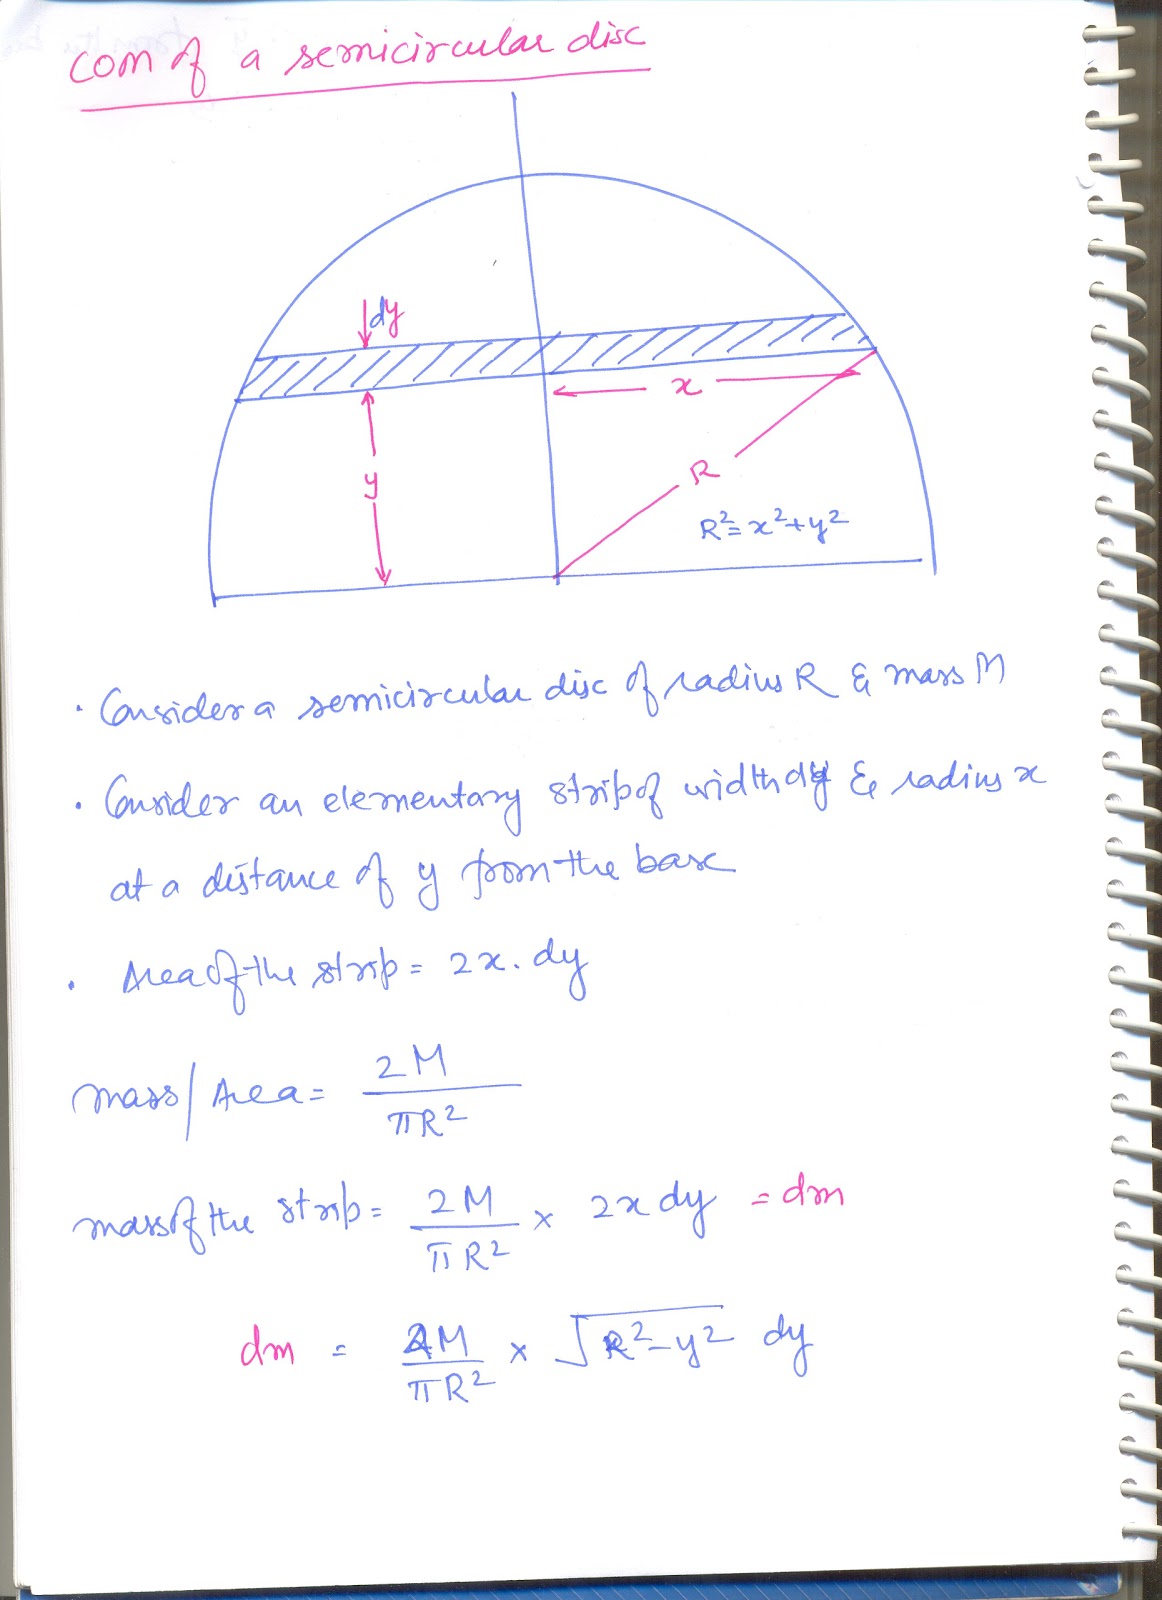 COM of a semicircular disc
dy
x
y
R
R² = x² + y²
· Consider a semicircular disc of radius R & mass M
· Consider an elementary strip of width dy & radius x
at a distance of y from the base
· Area of the strip = 2x. dy
mass / Area = 2M / πR²
mass of the strip = 2M / πR² × 2x dy = dm
dm = 4M / πR² × √(R² - y²) dy